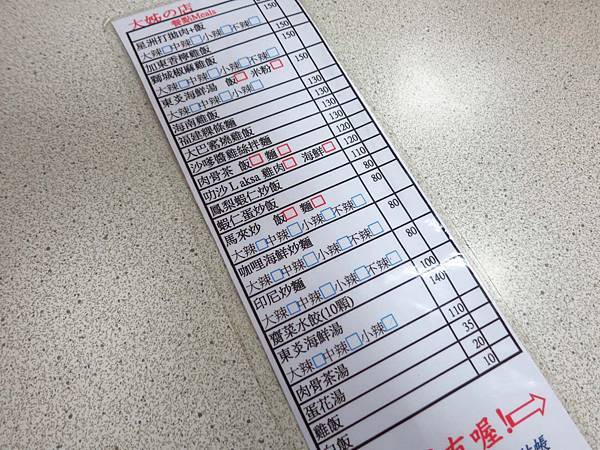 大姊の店
餐點Meals
星洲打拋肉+飯 150
大辣□中辣□小辣□不辣□
加東香檸雞飯 150
獅城椒麻雞飯 150
大辣□中辣□小辣□不辣□
東炎海鮮湯 飯□ 米粉□ 150
大辣□中辣□小辣□
海南雞飯 130
福建粿條麵 130
大巴窰燒雞飯 130
沙嗲醬雞絲拌麵 120
肉骨茶 飯□ 麵□ 120
叻沙Laksa 雞肉□ 海鮮□ 110
鳳梨蝦仁炒飯 80
蝦仁蛋炒飯 80
馬來炒 飯□ 麵□ 80
大辣□中辣□小辣□不辣□
咖哩海鮮炒麵 80
大辣□中辣□小辣□不辣□
印尼炒麵 100
大辣□中辣□小辣□不辣□
齋菜水餃(10顆)
東炎海鮮湯 140
大辣□中辣□小辣□
肉骨茶湯 110
蛋花湯 35
雞飯 20
白飯 10
喔!